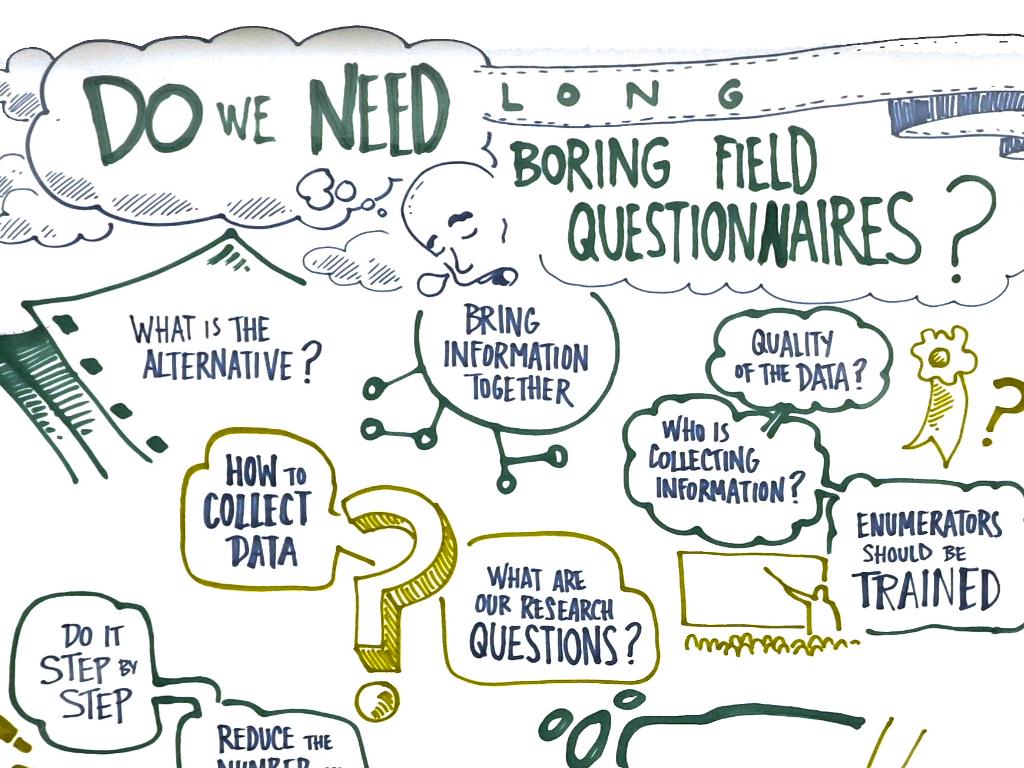 DO WE NEED
LONG
BORING FIELD
QUESTIONNAIRES?
WHAT IS THE
ALTERNATIVE?
BRING
INFORMATION
TOGETHER
QUALITY
OF THE DATA?
WHO IS
COLLECTING
INFORMATION?
?
HOW TO
COLLECT
DATA
?
ENUMERATORS
SHOULD BE
TRAINED
WHAT ARE
OUR RESEARCH
QUESTIONS?
DO IT
STEP BY
STEP
REDUCE THE
NUMBER